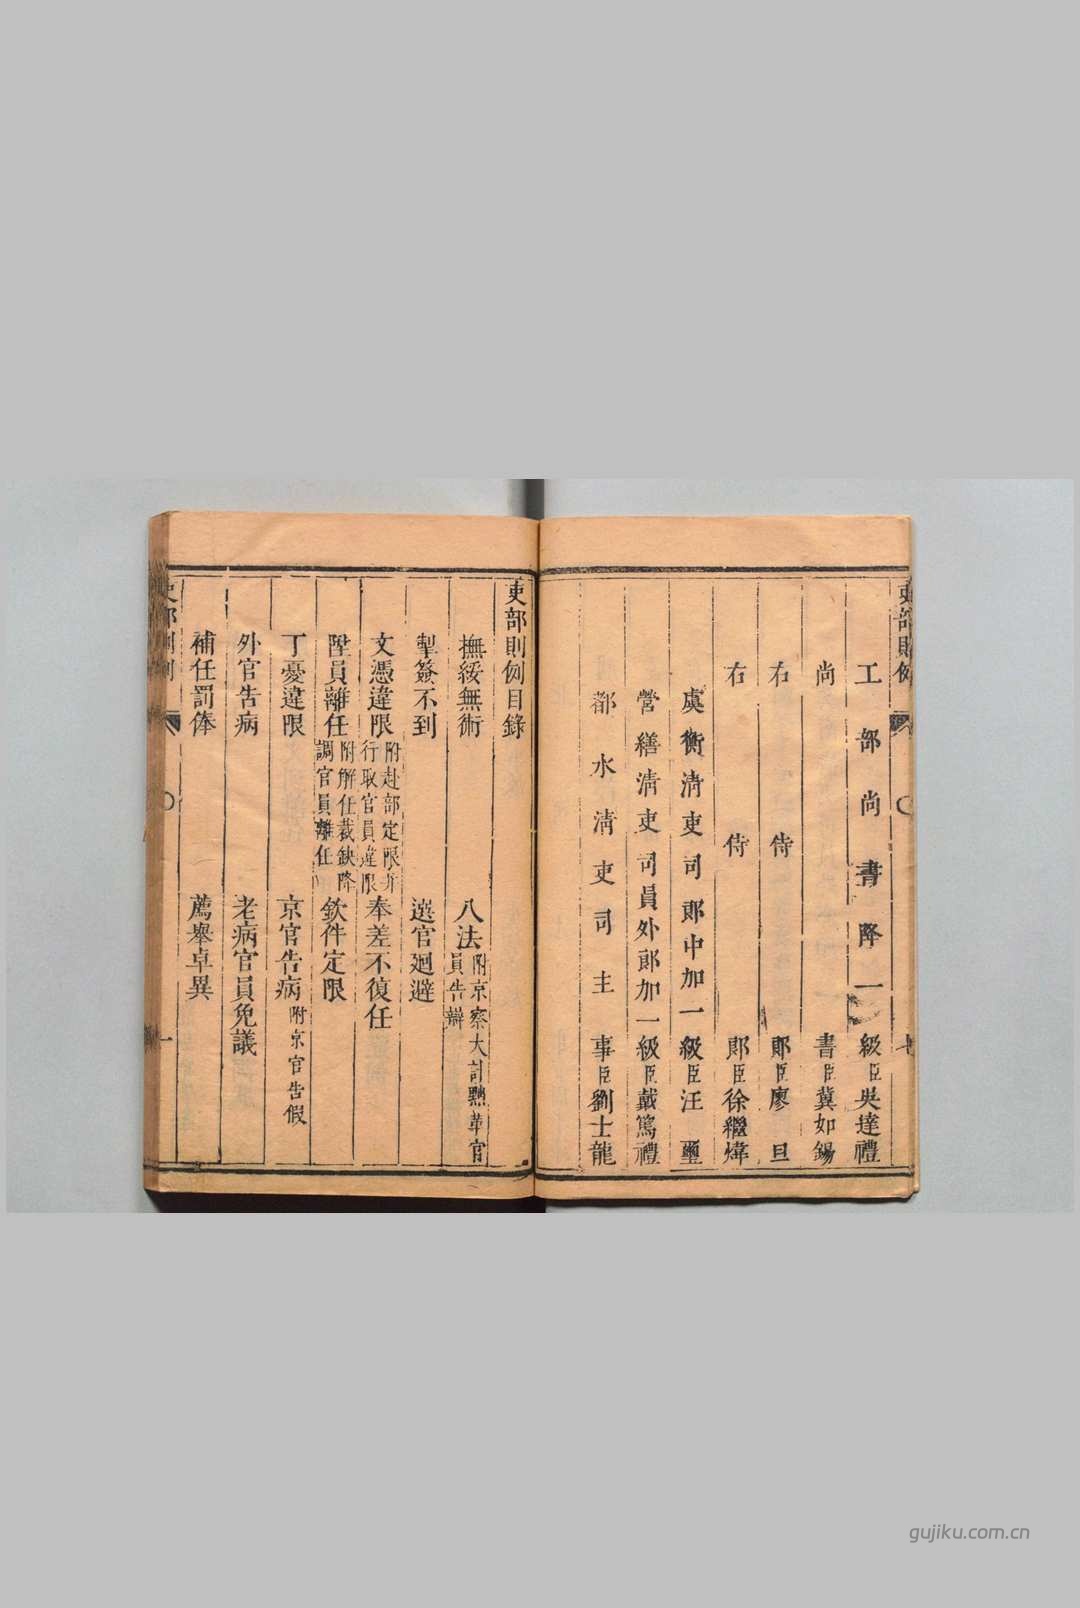 吏部則例
工部尚書降一級臣吳達禮
尚書臣冀如錫
右侍郎臣廖旦
右侍郎臣徐繼煒
虞衡清吏司郎中加一級臣汪璽
營繕清吏司員外郎加一級臣戴篤禮
都水清吏司主事臣劉士龍
吏部則例目錄
撫綏無術 八法附京察大計黜革官員告辯
掣簽不到 選官廻避
文憑違限附赴部定限并行取官員違限 奉差不復任
陞員離任附解任裁缺降調官員離任 欽件定限
丁憂違限 京官告病附京官告假
外官告病 老病官員免議
補任罰俸 薦舉卓異
吏部則例 一
gujiku.com.cn